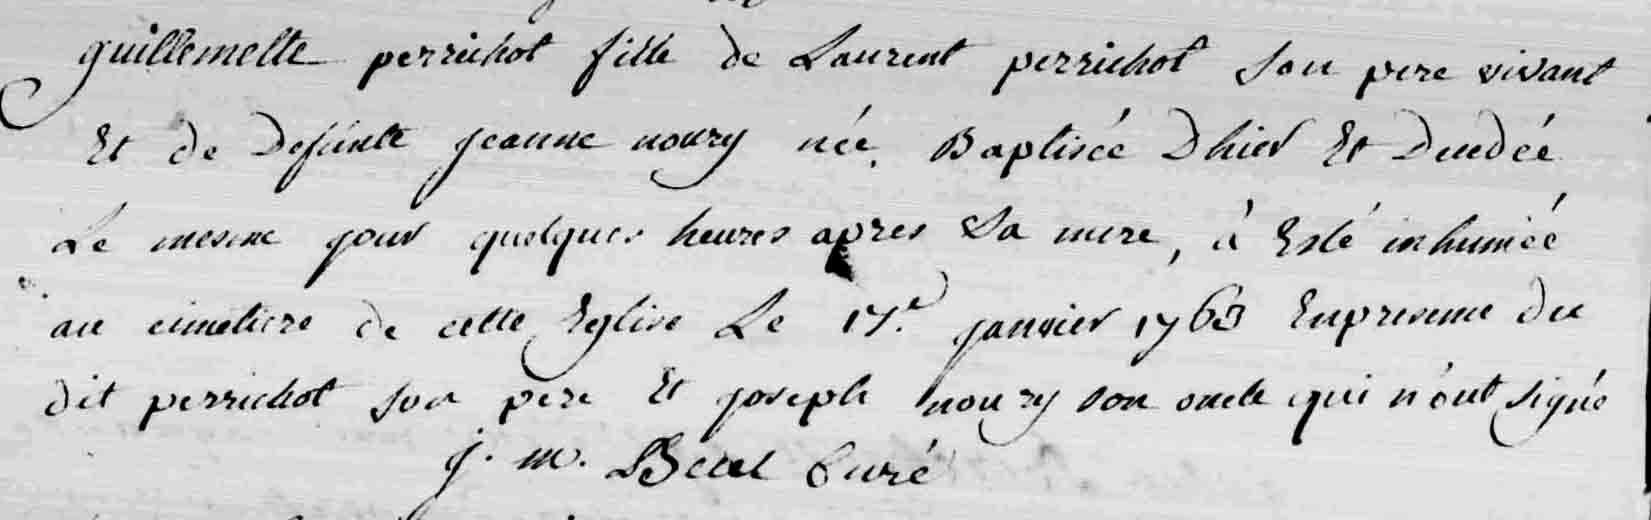 guillemette perrichot fille de Laurent perrichot son pere vivant
Et de Defunte jeanne noury née, Baptisée Dhier Et Decedée
Le mesme jour quelques heures apres Sa mere, à Esté inhumée
au cimetiere de cette Eglise Le 17.e janvier 1763 En presence du
dit perrichot son pere Et joseph noury son oncle qui n'ont signé
j. m. Curé